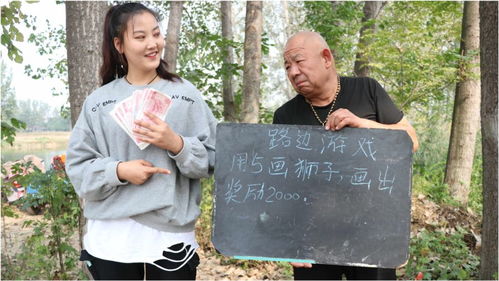 路边游戏
用5画狮子,画出
奖励2000.